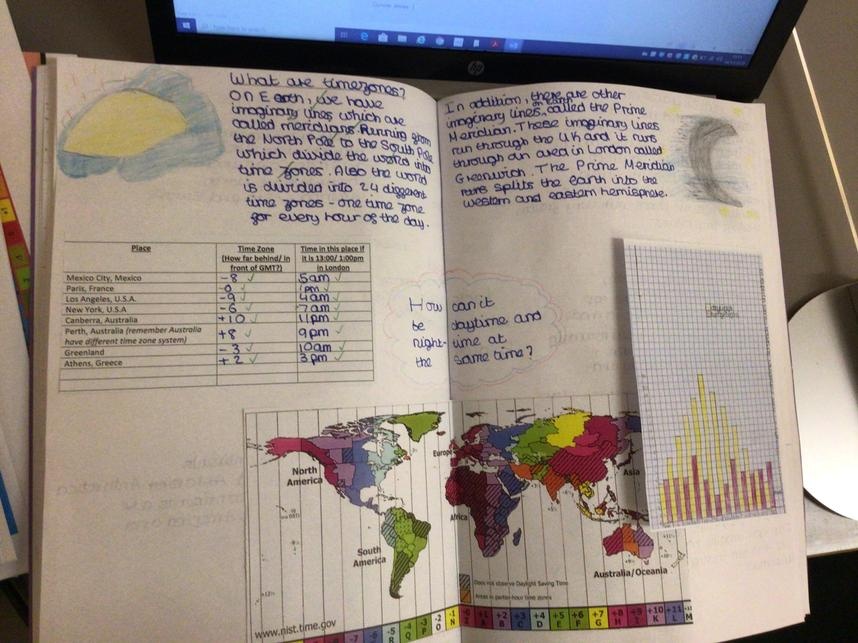 What are timezones?
On Earth, we have
imaginary lines which are
called meridians. Running from
the North Pole to the South Pole
which divide the world into
time zones. Also the world
is divided into 24 different
time zones - one time zone
for every hour of the day.
In addition, there are other
on Earth
imaginary lines, called the Prime
Meridian. These imaginary lines
run through the UK and it runs
through an area in London called
Greenwich. The Prime Meridian
splits the earth into the
western and eastern hemisphere.
Place Time Zone (How far behind/ in front of GMT?) Time in this place if it is 13:00/ 1:00pm in London
Mexico City, Mexico -8 5am
Paris, France -0 1pm
Los Angeles, U.S.A. -9 4am
New York, U.S.A -6 7am
Canberra, Australia +10 11pm
Perth, Australia (remember Australia have different time zone system) +8 9pm
Greenland -3 10am
Athens, Greece +2 3pm
How can it
be daytime and
night-time at
the same time?
North
America
Europe
Asia
Africa
South
America
Australia/Oceania
Does not observe Daylight Saving Time
Areas in partial-hour time zones
www.nist.time.gov
-5 -4 -3 -2 -1 +2 +3 +4 +5 +6 +7 +8 +9 +10 +11
R Q P O N A B C D E F G H I K L M
hp